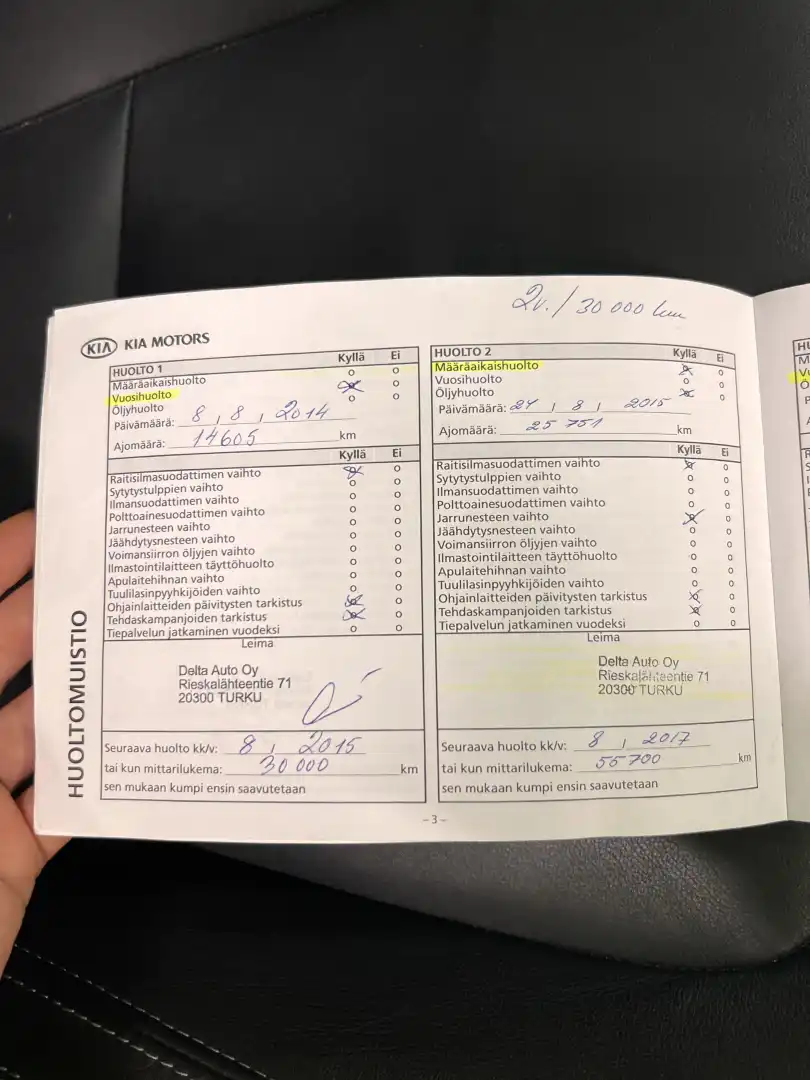 2v. / 30 000 km
KIA KIA MOTORS
HUOLTO 1 Kyllä Ei
Määräaikaishuolto o o
Vuosihuolto x o
Öljyhuolto o o
Päivämäärä: 8 / 8 / 2014
Ajomäärä: 14605 km
Kyllä Ei
Raitisilmasuodattimen vaihto x o
Sytytystulppien vaihto o o
Ilmansuodattimen vaihto o o
Polttoainesuodattimen vaihto o o
Jarrunesteen vaihto o o
Jäähdytysnesteen vaihto o o
Voimansiirron öljyjen vaihto o o
Ilmastointilaitteen täyttöhuolto o o
Apulaitehihnan vaihto o o
Tuulilasinpyyhkijöiden vaihto o o
Ohjainlaitteiden päivitysten tarkistus x o
Tehdaskampanjoiden tarkistus x o
Tiepalvelun jatkaminen vuodeksi o o
Leima
Delta Auto Oy
Rieskalähteentie 71
20300 TURKU
Seuraava huolto kk/v: 8 / 2015
tai kun mittarilukema: 30 000 km
sen mukaan kumpi ensin saavutetaan
HUOLTO 2 Kyllä Ei
Määräaikaishuolto x o
Vuosihuolto o o
Öljyhuolto x o
Päivämäärä: 24 / 8 / 2015
Ajomäärä: 25 751 km
Kyllä Ei
Raitisilmasuodattimen vaihto x o
Sytytystulppien vaihto o o
Ilmansuodattimen vaihto o o
Polttoainesuodattimen vaihto o o
Jarrunesteen vaihto x o
Jäähdytysnesteen vaihto o o
Voimansiirron öljyjen vaihto o o
Ilmastointilaitteen täyttöhuolto o o
Apulaitehihnan vaihto o o
Tuulilasinpyyhkijöiden vaihto o o
Ohjainlaitteiden päivitysten tarkistus x o
Tehdaskampanjoiden tarkistus x o
Tiepalvelun jatkaminen vuodeksi o o
Leima
Delta Auto Oy
Rieskalähteentie 71
20300 TURKU
Seuraava huolto kk/v: 8 / 2017
tai kun mittarilukema: 55 700 km
sen mukaan kumpi ensin saavutetaan
HUOLTOMUISTIO
–3–